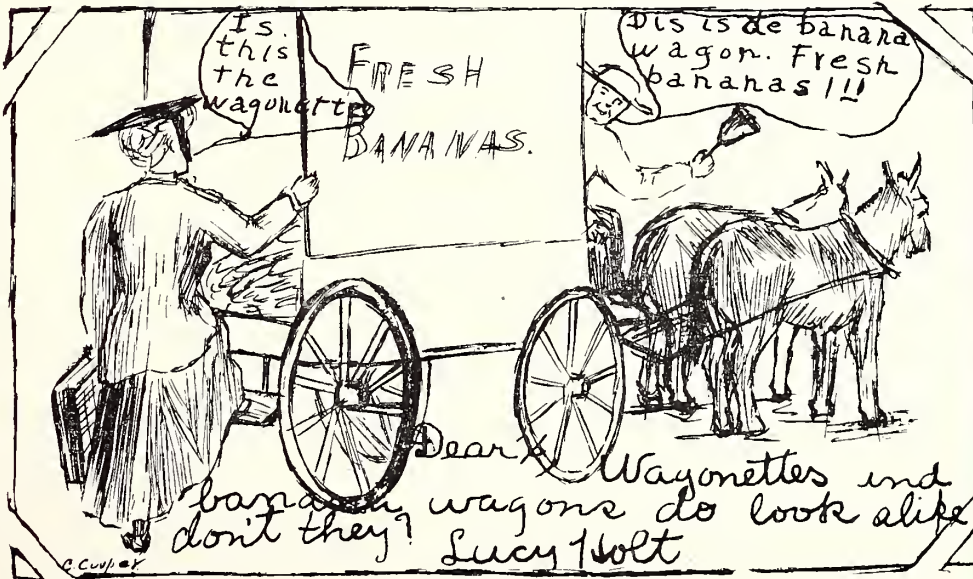 Is.
this
the
wagonette
FRESH
BANANAS.
Dis is de banana
wagon. Fresh
bananas!!!
Dear
Wagonettes and
banana wagons do look alike
don't they?
Lucy Holt
C. Cooper